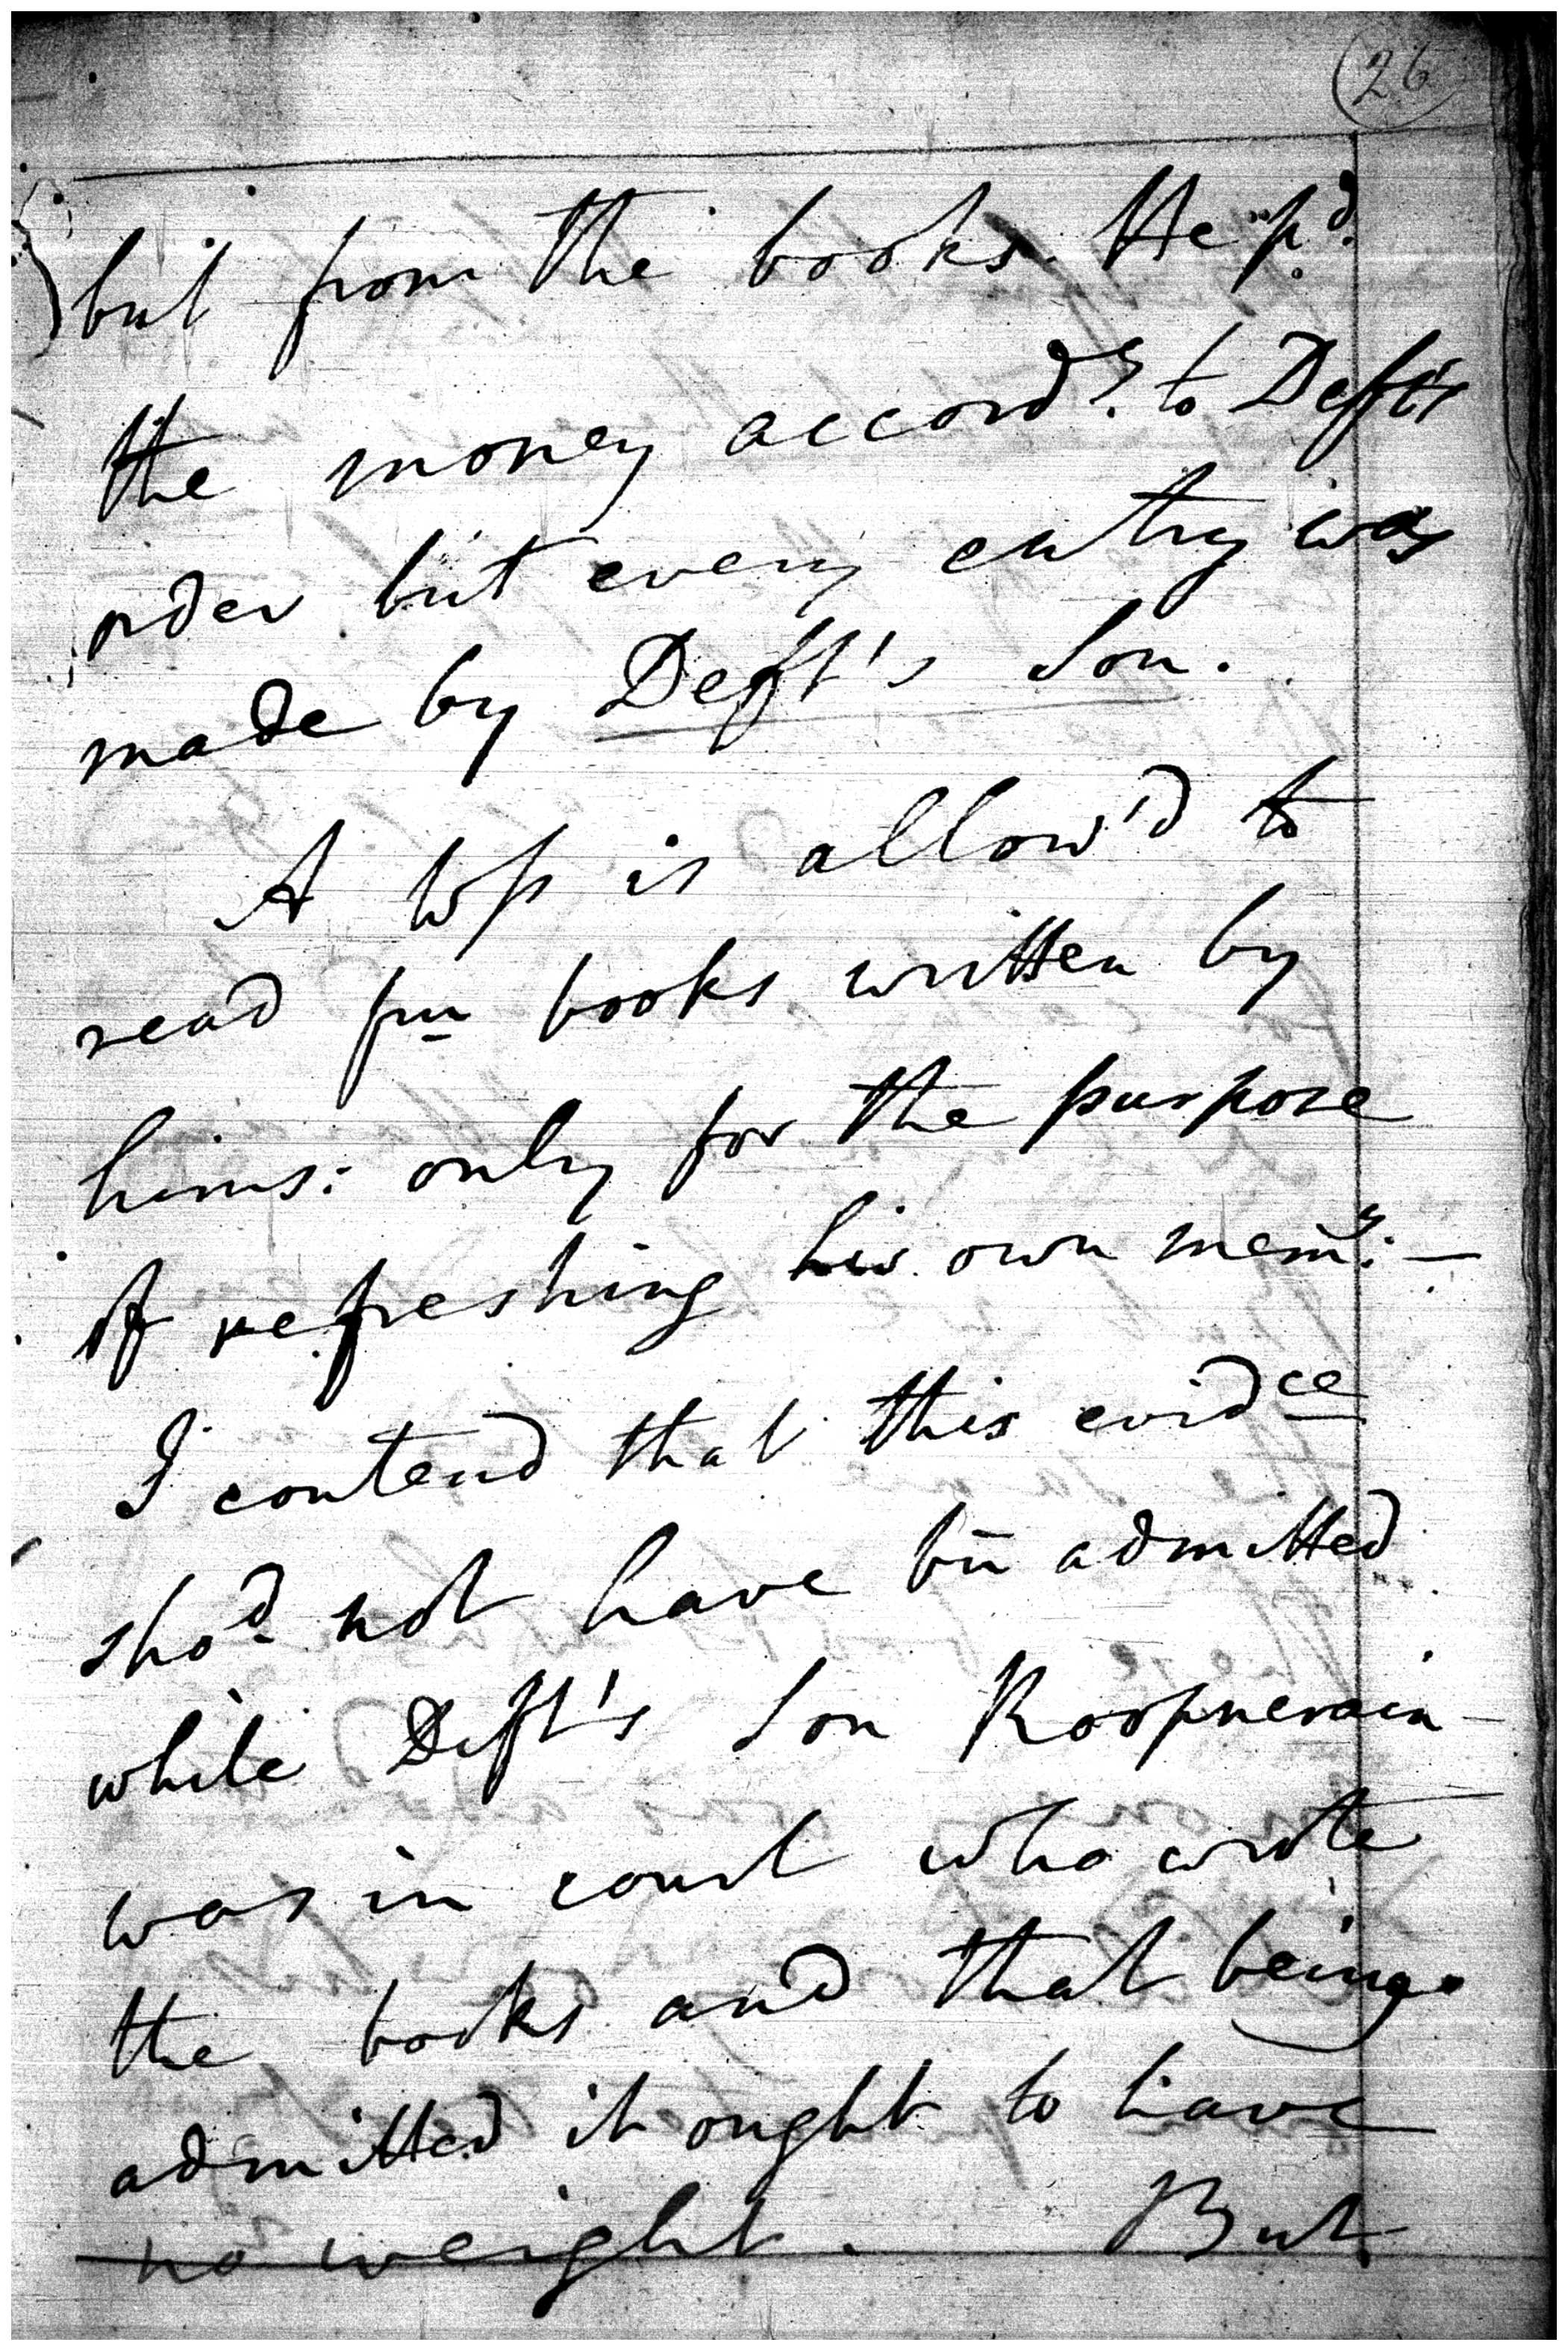 26
but from the books. He pd.
the money accordg. to Deft's
order but every entry was
made by Deft's Son.
A wss is allow'd to
read fm books written by
hims: only for the purpose
of refreshing his own memy: —
I contend that this evidce
shod. not have bn admitted
while Deft's Son Roopnerain
was in court who wrote
the books and that being
admitted it ought to have
no weight. But